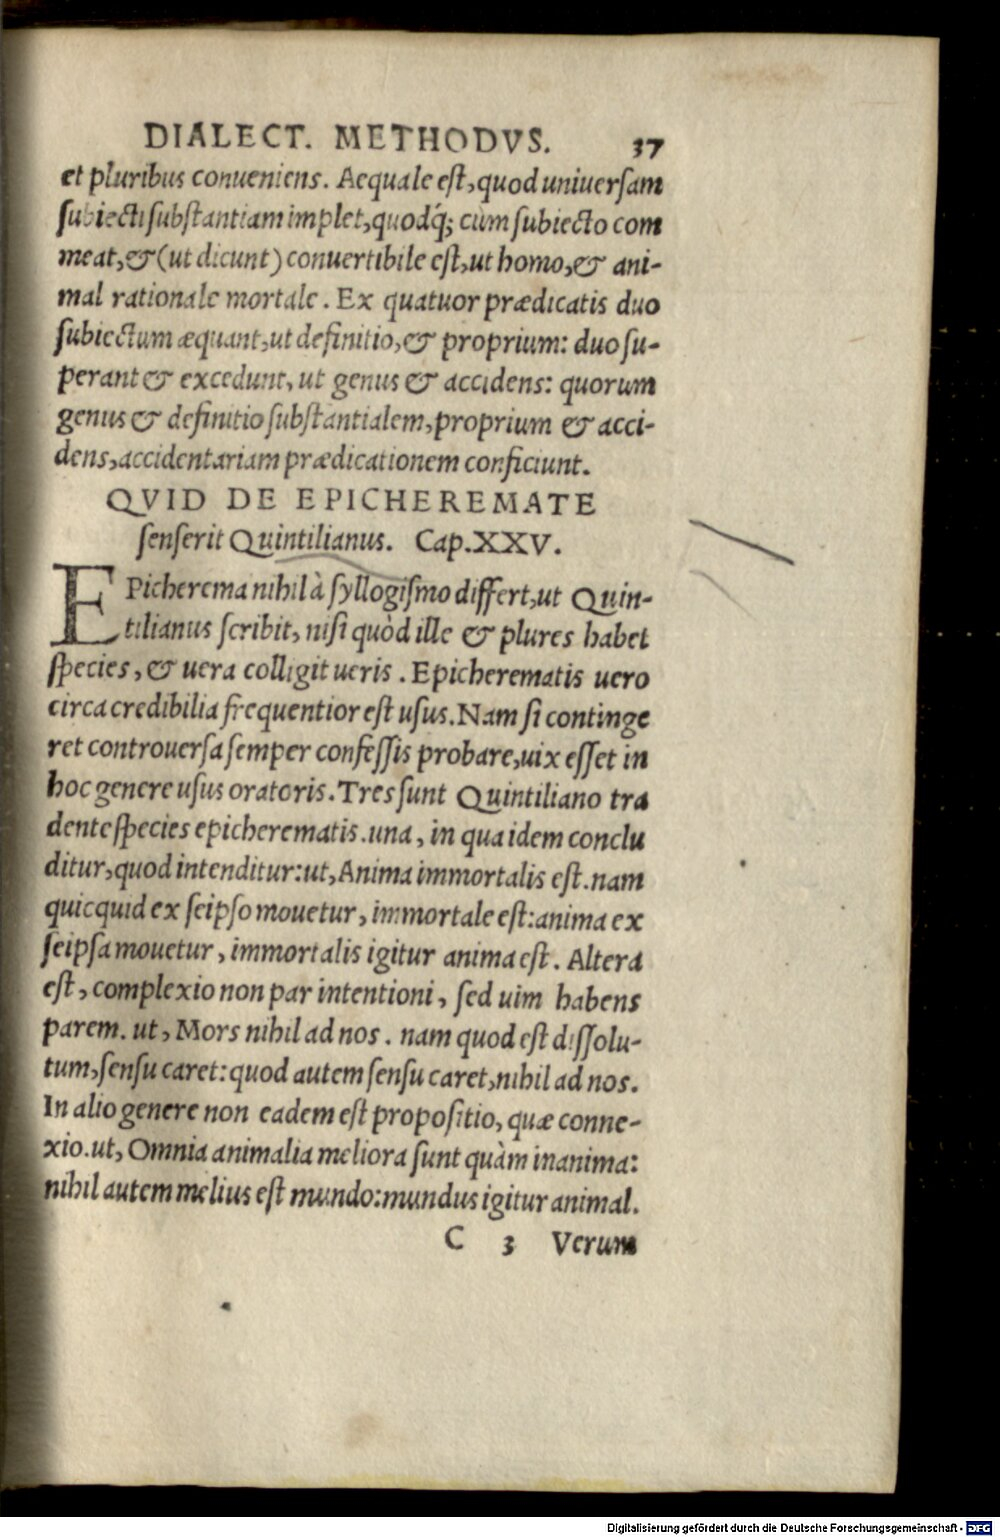 DIALECT. METHODVS. 37
et pluribus conueniens. Aequale est, quod uniuersam
subiecti substantiam implet, quodq́; cùm subiecto com
meat, & (ut dicunt) conuertibile est, ut homo, & ani-
mal rationale mortale. Ex quatuor prædicatis duo
subiectum æquant, ut definitio, & proprium: duo su-
perant & excedunt, ut genus & accidens: quorum
genus & definitio substantialem, proprium & acci-
dens, accidentariam prædicationem conficiunt.
QVID DE EPICHEREMATE
senserit Quintilianus. Cap. XXV.
EPicherema nihil à syllogismo differt, ut Quin-
tilianus scribit, nisi quòd ille & plures habet
species, & uera colligit ueris. Epicherematis uero
circa credibilia frequentior est usus. Nam si continge
ret controuersa semper confessis probare, uix esset in
hoc genere usus oratoris. Tres sunt Quintiliano tra
dente species epicherematis. una, in qua idem conclu
ditur, quod intenditur: ut, Anima immortalis est. nam
quicquid ex seipso mouetur, immortale est: anima ex
seipsa mouetur, immortalis igitur anima est. Altera
est, complexio non par intentioni, sed uim habens
parem. ut, Mors nihil ad nos. nam quod est dissolu-
tum, sensu caret: quod autem sensu caret, nihil ad nos.
In alio genere non eadem est propositio, quæ conne-
xio. ut, Omnia animalia meliora sunt quàm inanima:
nihil autem melius est mundo: mundus igitur animal.
C 3 Verum
Digitalisierung gefördert durch die Deutsche Forschungsgemeinschaft - DFG